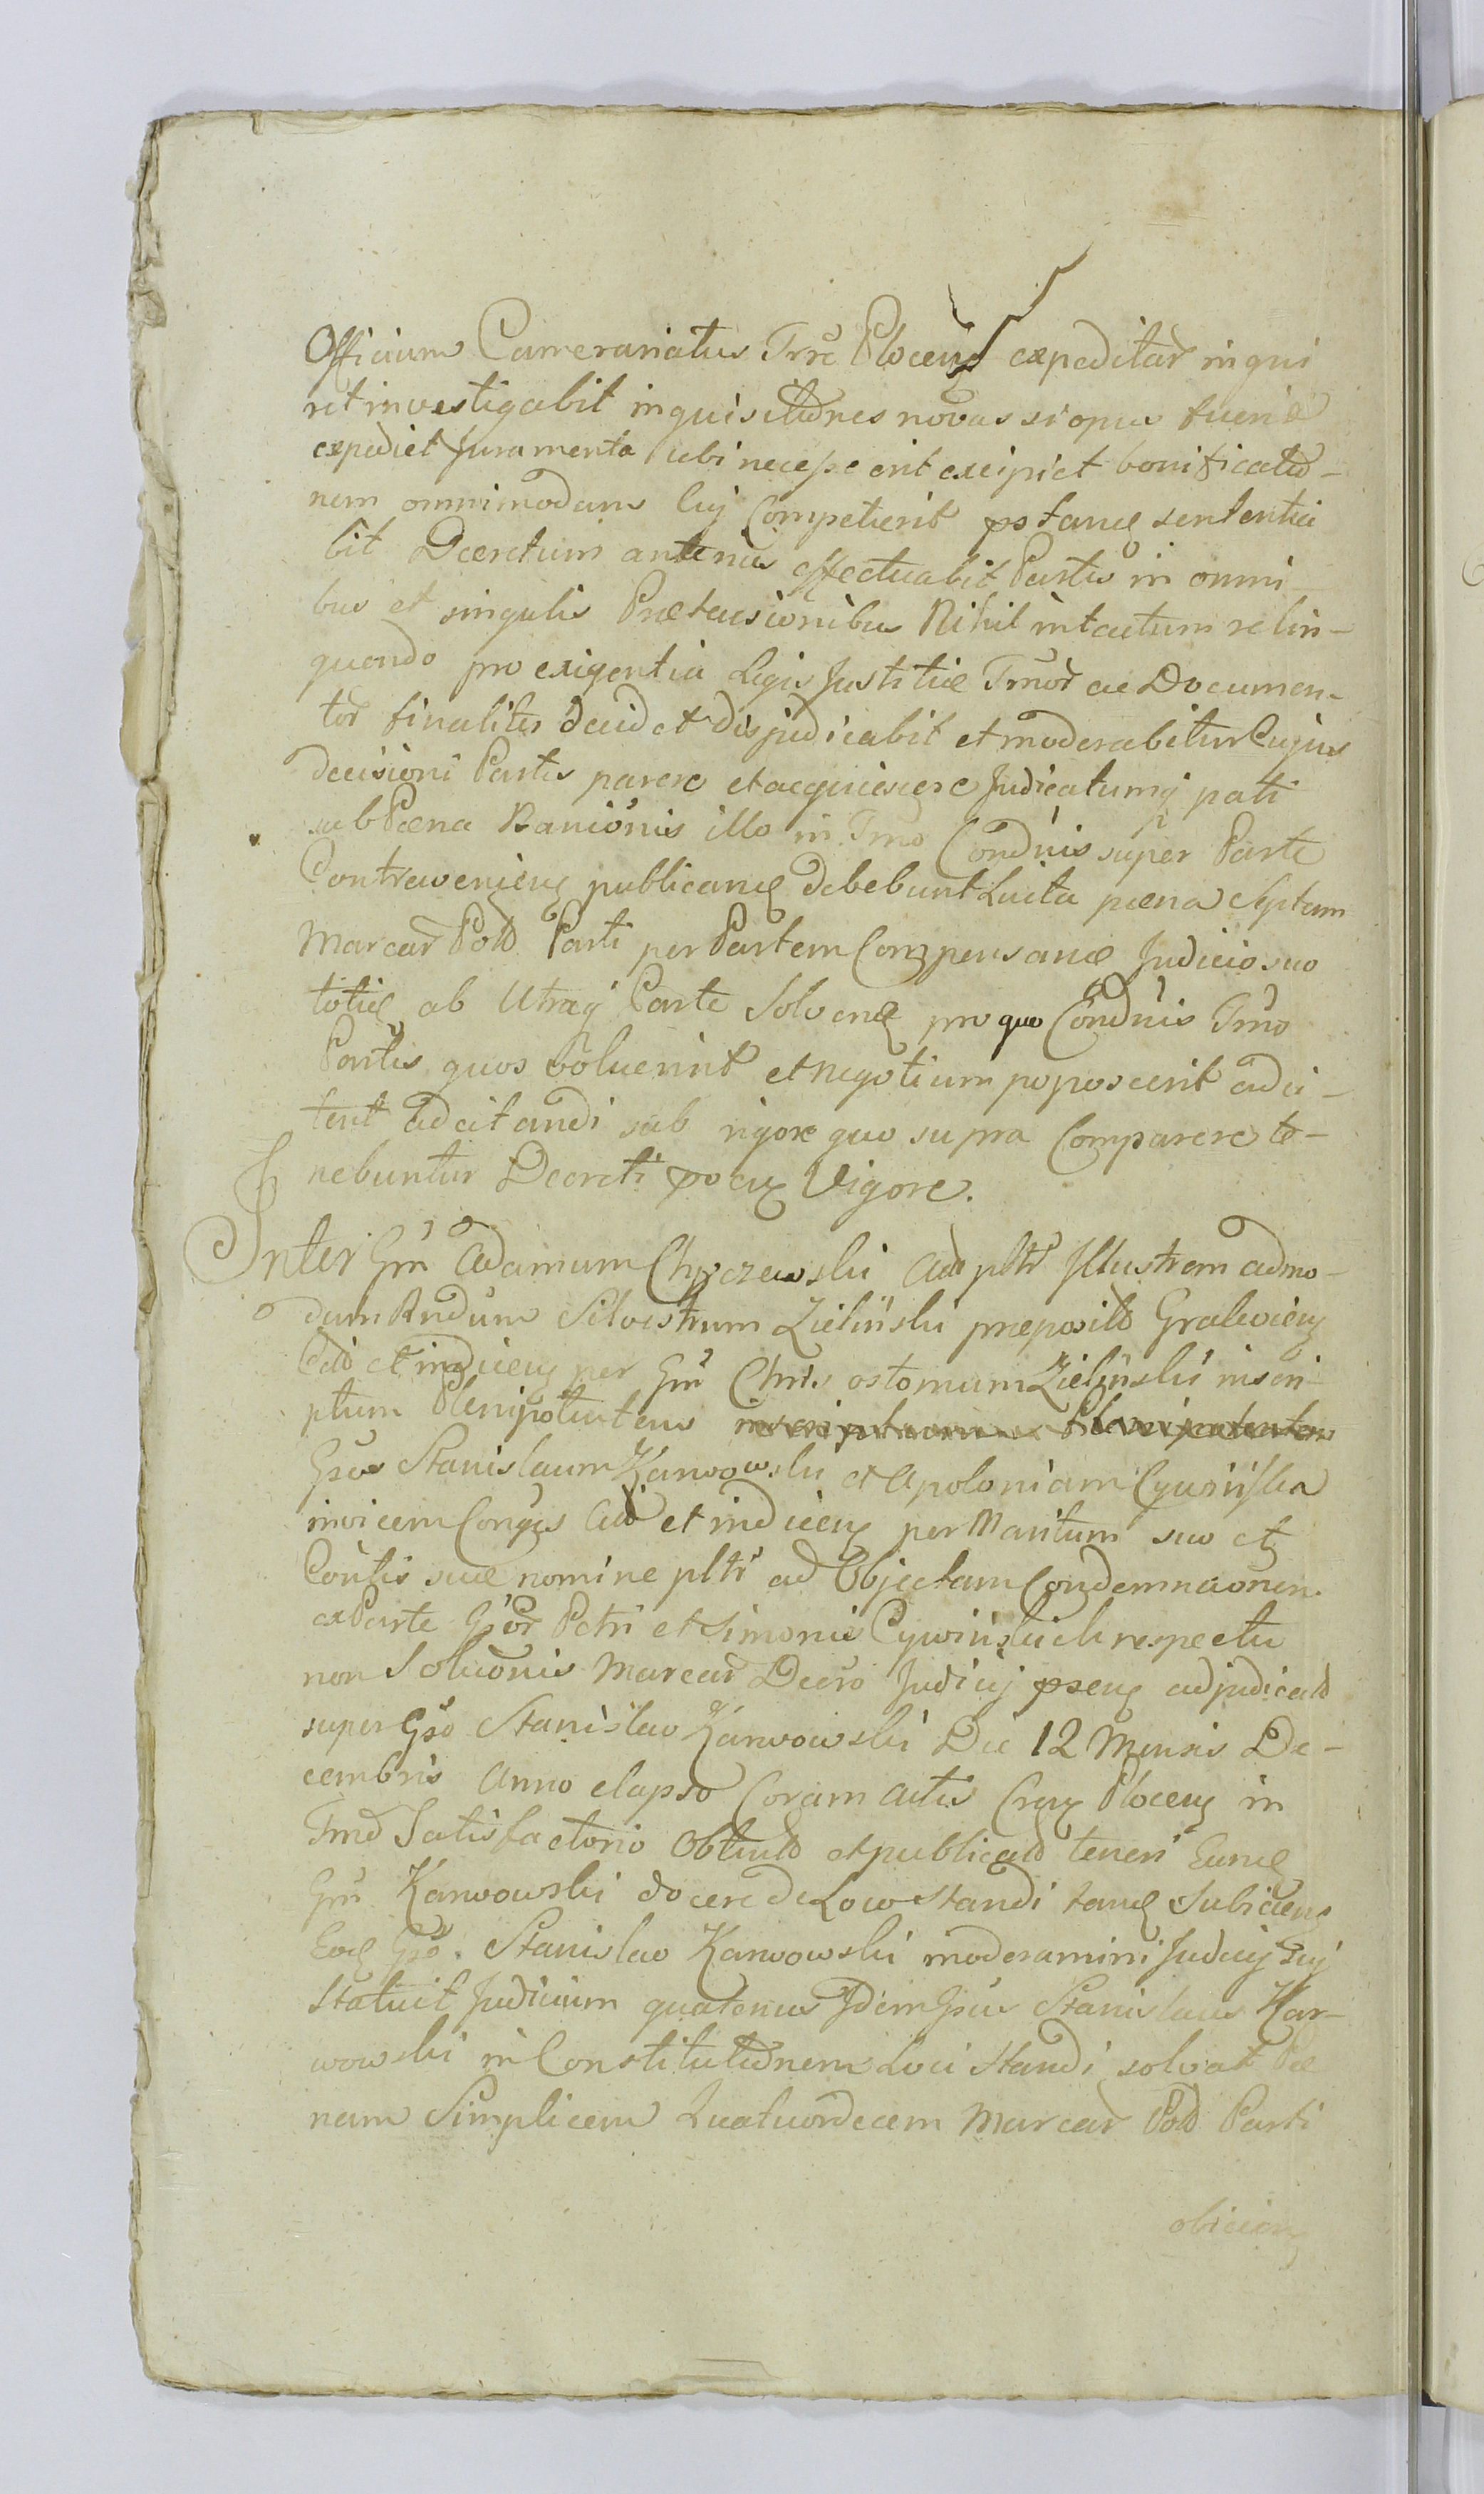 Officium Camerariatus Trrē Plocens expeditar inqui
ret investigabit inquisitiōnes novas si opus fuerit
expediet Juramenta ubi necesse erit excipiet bonificatiō-
nem omnimodam cuj Competierit pstandē sententia
bit Decretum anterius effectuabit Partes in omni-
bus et singulis Prætensionibus Nihil intactum relin-
quendo pro exigentia Legis Justitiæ Trmōr ac Documen-
tōr finaliter decidet dijudicabit et moderabitur Cujus
decisioni Partes parere et acquiescere Judicatumq pati
sub Pœna Baniōnis illo in Trnō Condnis super Parte
Contraveniens publicandē debebunt Luita pœna Septem
Marcar Polō Parti per Partem Compensandē Judicio suo
totiē ab Utraq Parte Solvendē pro quo Condnis Trnō
Partes quos voluerint et negotium poposcerit adci-
tent adcitandi sub rigore quo supra Comparere te-
nebuntur Decreti pns Vigore.
Inter Gm Adamum Chyczewski Act pltr Illustrem admo-
dum Rndum Silvestrum Zieliński præpositō Graleviens
Citō et inducens per Gm Chrisostomum Zieliński inscri-
ptum Plenipotentem inscriptum Plenipotentem
Gsos Stanislaum Karwowski et Apoloniam Cywińska
invicem Congs Citō et inducens per Maritum suo et
Contis suæ nomine pltr ad Objectam Condemnaonem
ex Parte Gsōr Petri et Simonis Cywińskich respectu
non Soluōnis Marcar Decrō Judicij psens adjudicatō
super Gsō Stanislao Karwowski Die 12 Mensis De-
cembris Anno elapso Coram Actis Crens Plocens in
Trnō Satisfactorio Obtentō et publicatō teneri Eundē
Gm Karwowski docere de Loco standi tandē Subiciens
Eodē Gsō. Stanislao Karwowski moderamini Judicij suj
Statuit Judicium quatenus Idem Gsus Stanislaus Kar-
wowski in Constitutiōnem Loci Standi solvat Pœ
nam Simplicem Quatuordecem Marcar Polō Parti
obiciens